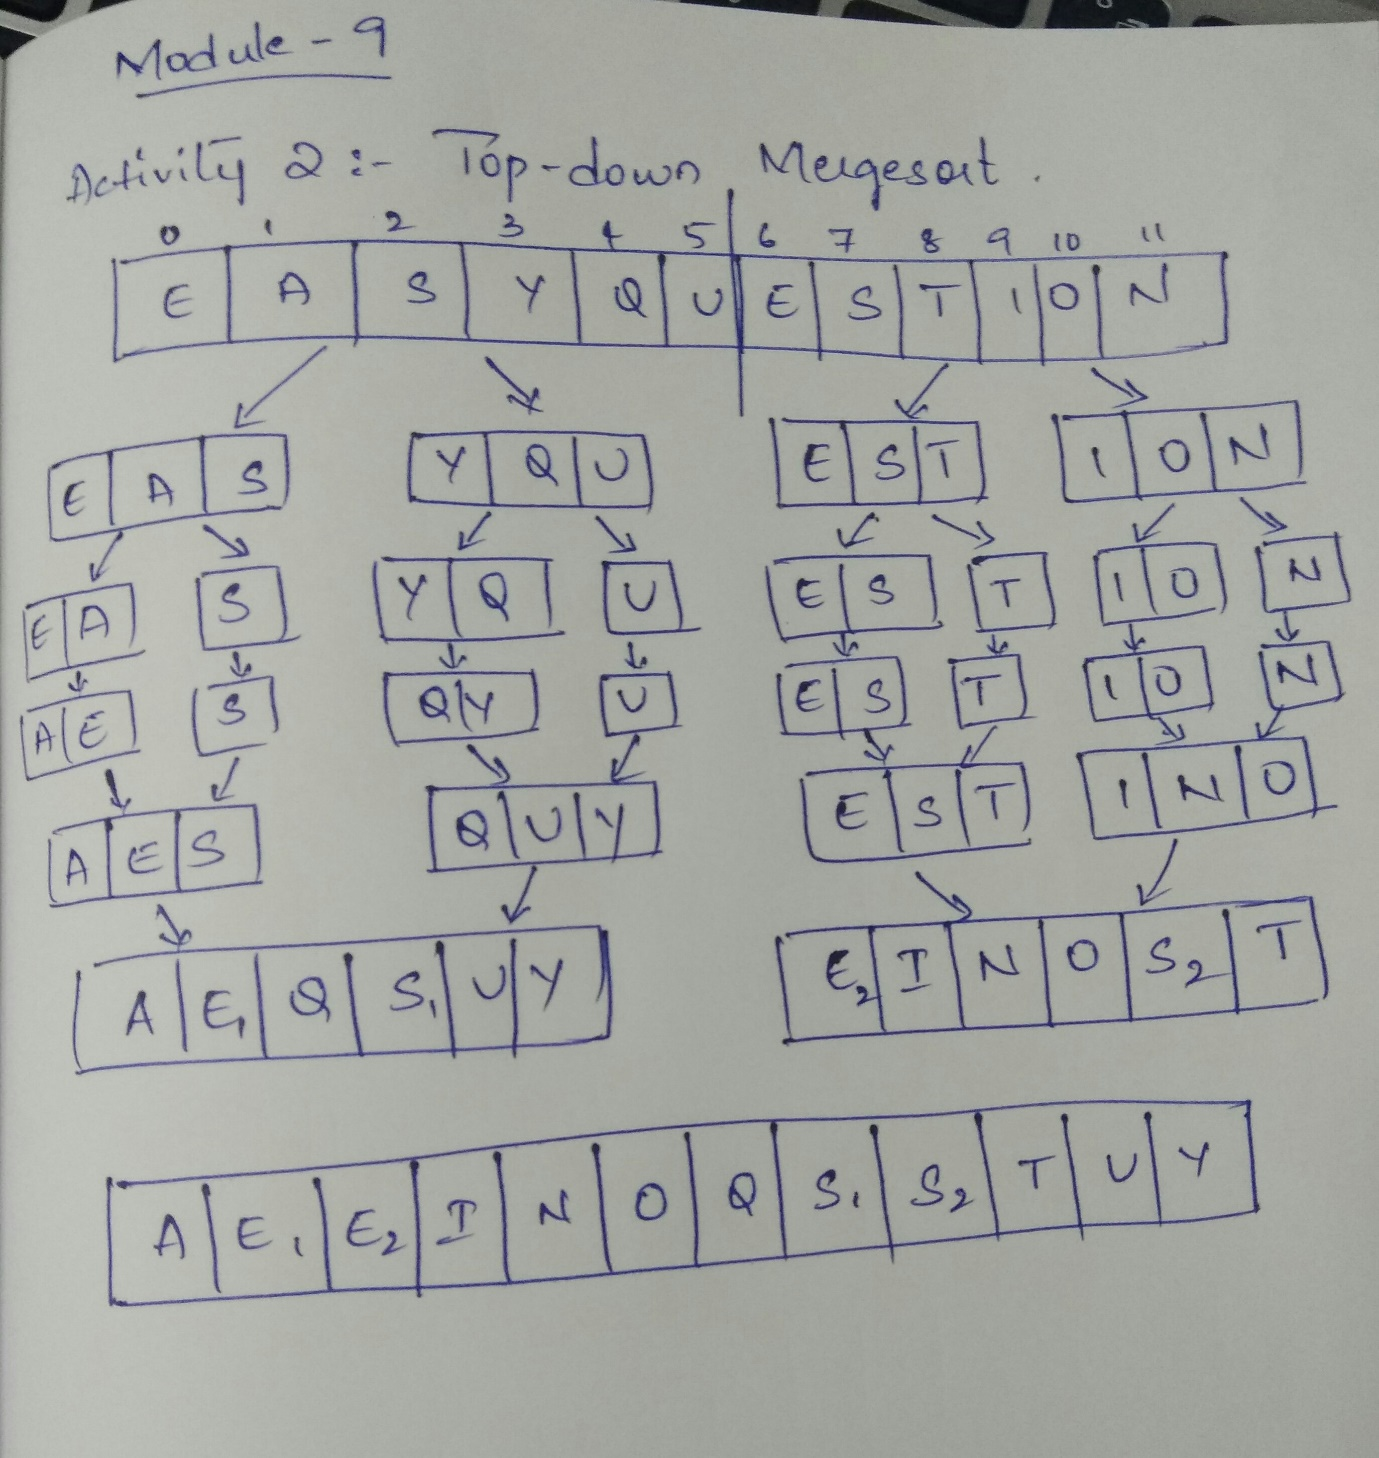 Module - 9
Activity 2 :- Top-down Mergesort.
0 1 2 3 4 5 6 7 8 9 10 11
E A S Y Q U E S T I O N
E A S Y Q U E S T I O N
E A S Y Q U E S T I O N
A E S Q Y U E S T I O N
A E S Q U Y E S T I N O
A E1 Q S1 U Y E2 I N O S2 T
A E1 E2 I N O Q S1 S2 T U Y